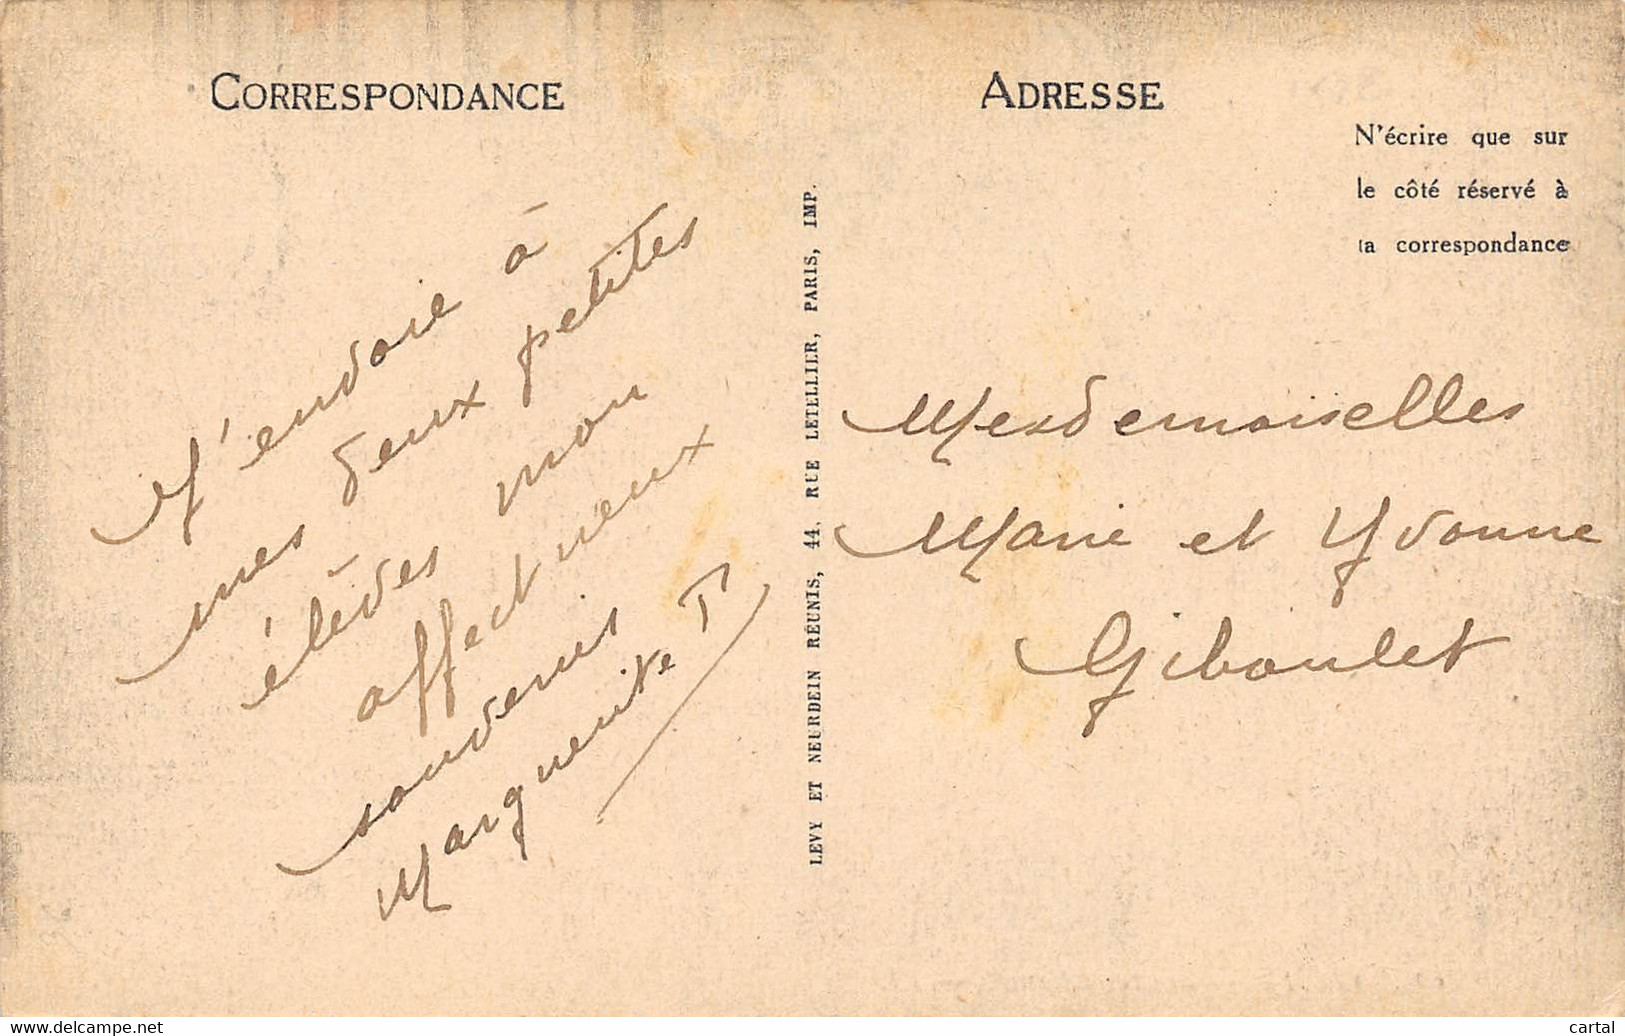 CORRESPONDANCE
J'envoie à
mes deux petites
élèves mon
affectueux
souvenir
Marguerite T
LEVY ET NEURDEIN RÉUNIS, 44, RUE LETELLIER, PARIS, IMP.
ADRESSE
N'écrire que sur
le côté réservé à
la correspondance
Mesdemoiselles
Marie et Yvonne
Giboulet
www.delcampe.net
cartal